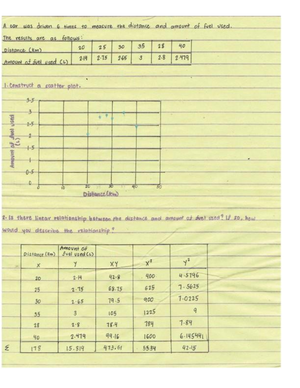 A car was driven 6 times to measure the distance and amount of fuel used.
The results are as follows:
Distance (km) 20 25 30 35 28 40
Amount of fuel used (L) 2.14 2.75 2.65 3 2.8 2.479
1. Construct a scatter plot.
3.5
3
2.5
2
1.5
1
0.5
0
Amount of fuel used (L)
0 10 20 30 40 50
Distance (km)
2. Is there linear relationship between the distance and amount of fuel used? If so, how
would you describe the relationship?
Distance (km) Amount of fuel used (L)
X Y XY X² Y²
20 2.14 42.8 400 4.5796
25 2.75 68.75 625 7.5625
30 2.65 79.5 900 7.0225
35 3 105 1225 9
28 2.8 78.4 784 7.84
40 2.479 99.16 1600 6.145441
Σ 178 15.819 473.61 5534 42.15